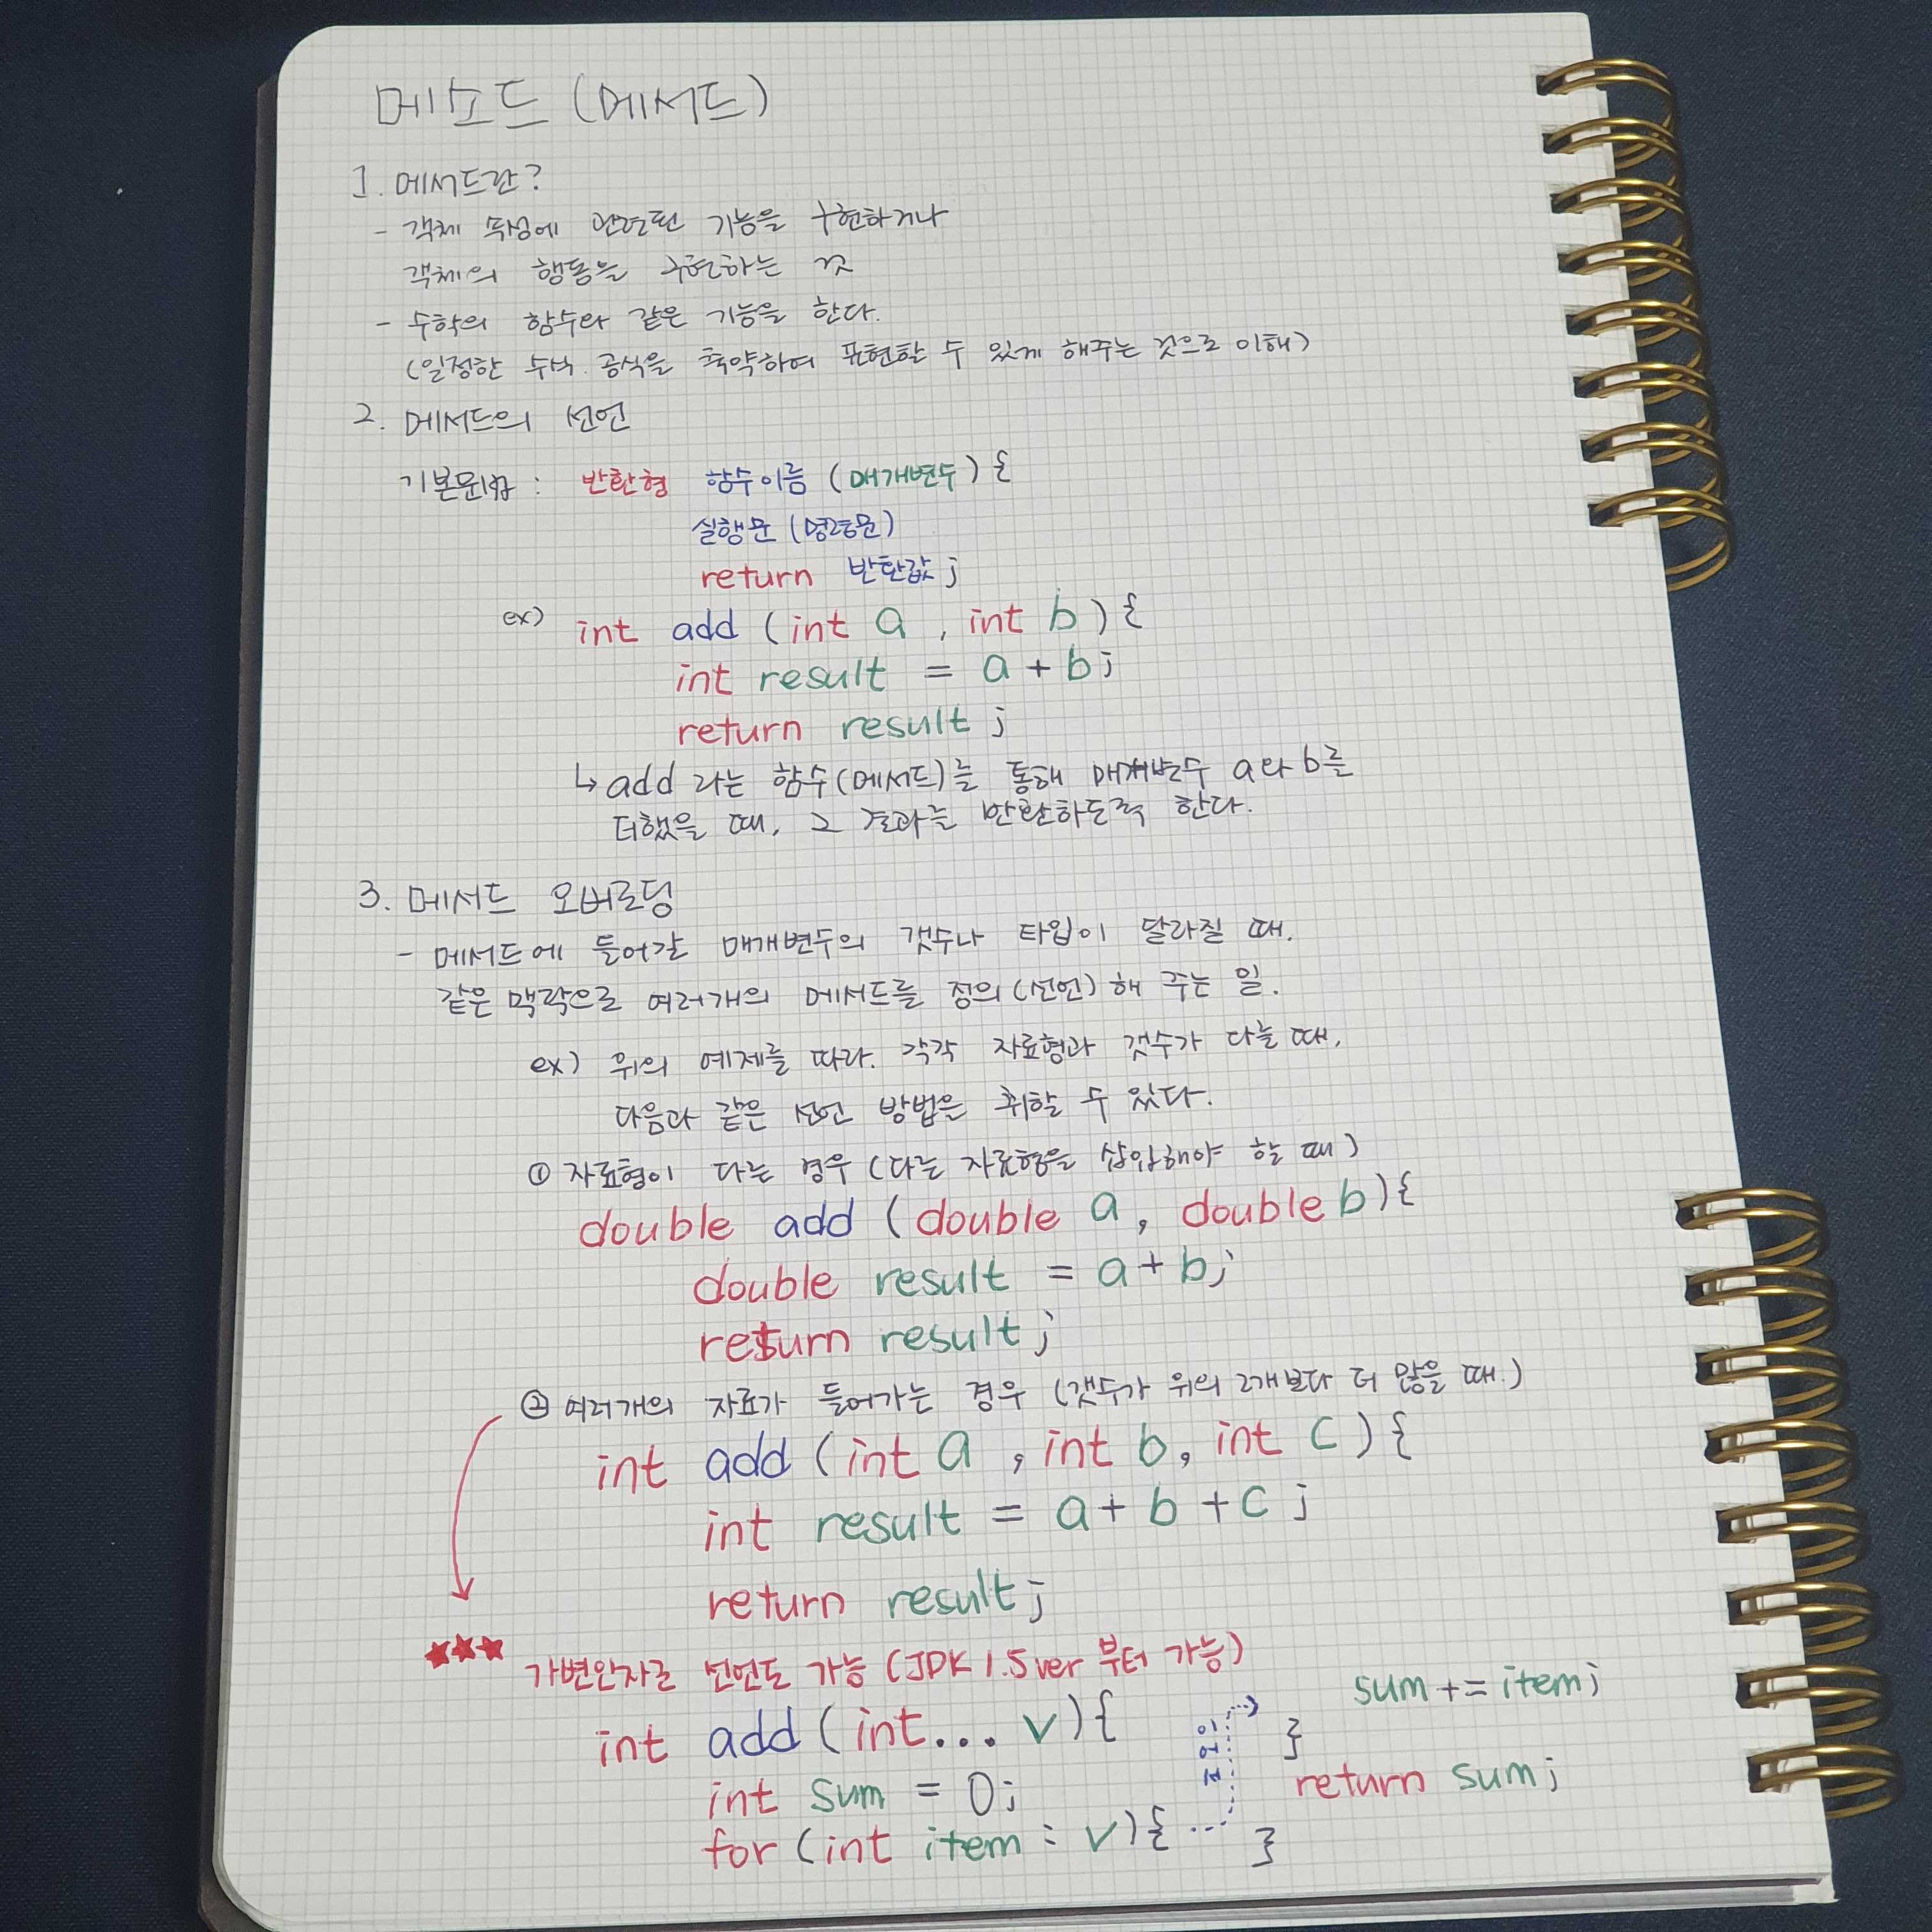 메소드 (메서드)
1. 메서드란?
- 객체 속성에 관련된 기능을 구현하거나
객체의 행동을 구현하는 것
- 수학의 함수와 같은 기능을 한다.
(일정한 수식. 공식을 축약하여 표현할 수 있게 해주는 것으로 이해)
2. 메서드의 선언
기본문법 : 반환형 함수이름 (매개변수) {
실행문 (명령문)
return 반환값;
ex) int add (int a , int b ) {
int result = a + b;
return result ;
↳ add 라는 함수(메서드)를 통해 매개변수 a와 b를
더했을 때, 그 결과를 반환하도록 한다.
3. 메서드 오버로딩
- 메서드에 들어갈 매개변수의 갯수나 타입이 달라질 때.
같은 맥락으로 여러개의 메서드를 정의(선언)해 주는 일.
ex) 위의 예제를 따라. 각각 자료형과 갯수가 다를 때,
다음과 같은 선언 방법을 취할 수 있다.
① 자료형이 다른 경우 (다른 자료형을 삽입해야 할 때)
double add (double a, double b){
double result = a+b;
return result;
② 여러개의 자료가 들어가는 경우 (갯수가 위의 2개보다 더 많을 때.)
int add (int a , int b, int c ) {
int result = a+ b +c ;
return result;
★★★ 가변인자로 선언도 가능 (JDK 1.5 ver 부터 가능)
int add (int... v){
int sum = 0;
for (int item : v){ ...
이어짐
sum += item;
}
return sum;
}